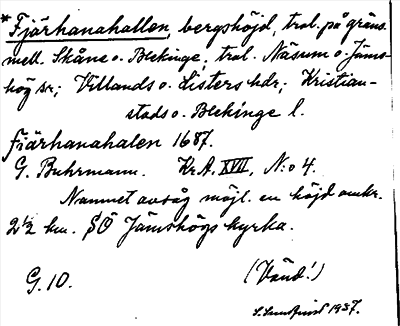 * Fjärhanahallen, bergshöjd, trol. på gräns.
mell. Skåne o. Blekinge, trol. Näsum o. Jäms-
hög sr; Villands o. Listers hdr; Kristian-
stads o. Blekinge l.
fiärhanahalen 1687.
G. Buhrmann. Kr.A. XVII, N:o 4.
Namnet avsåg möjl. en höjd omkr.
2½ km. SÖ Jämshögs kyrka.
G. 10. (Vänd!)
1937.